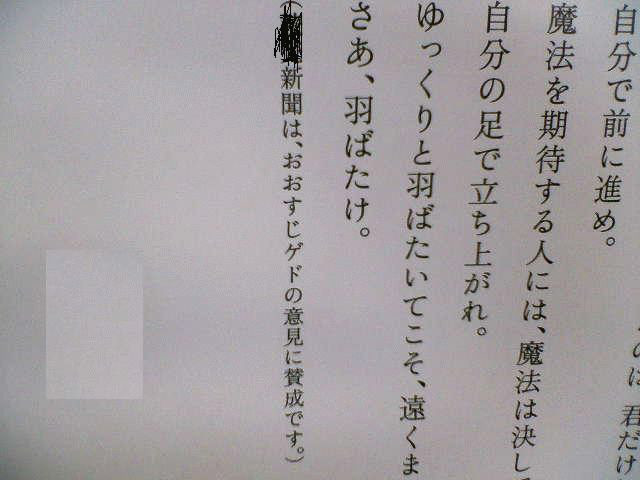 のは 君だけ
自分で前に進め。
魔法を期待する人には、魔法は決し
自分の足で立ち上がれ。
ゆっくりと羽ばたいてこそ、遠くま
さあ、羽ばたけ。
（新聞は、おおすじゲドの意見に賛成です。）